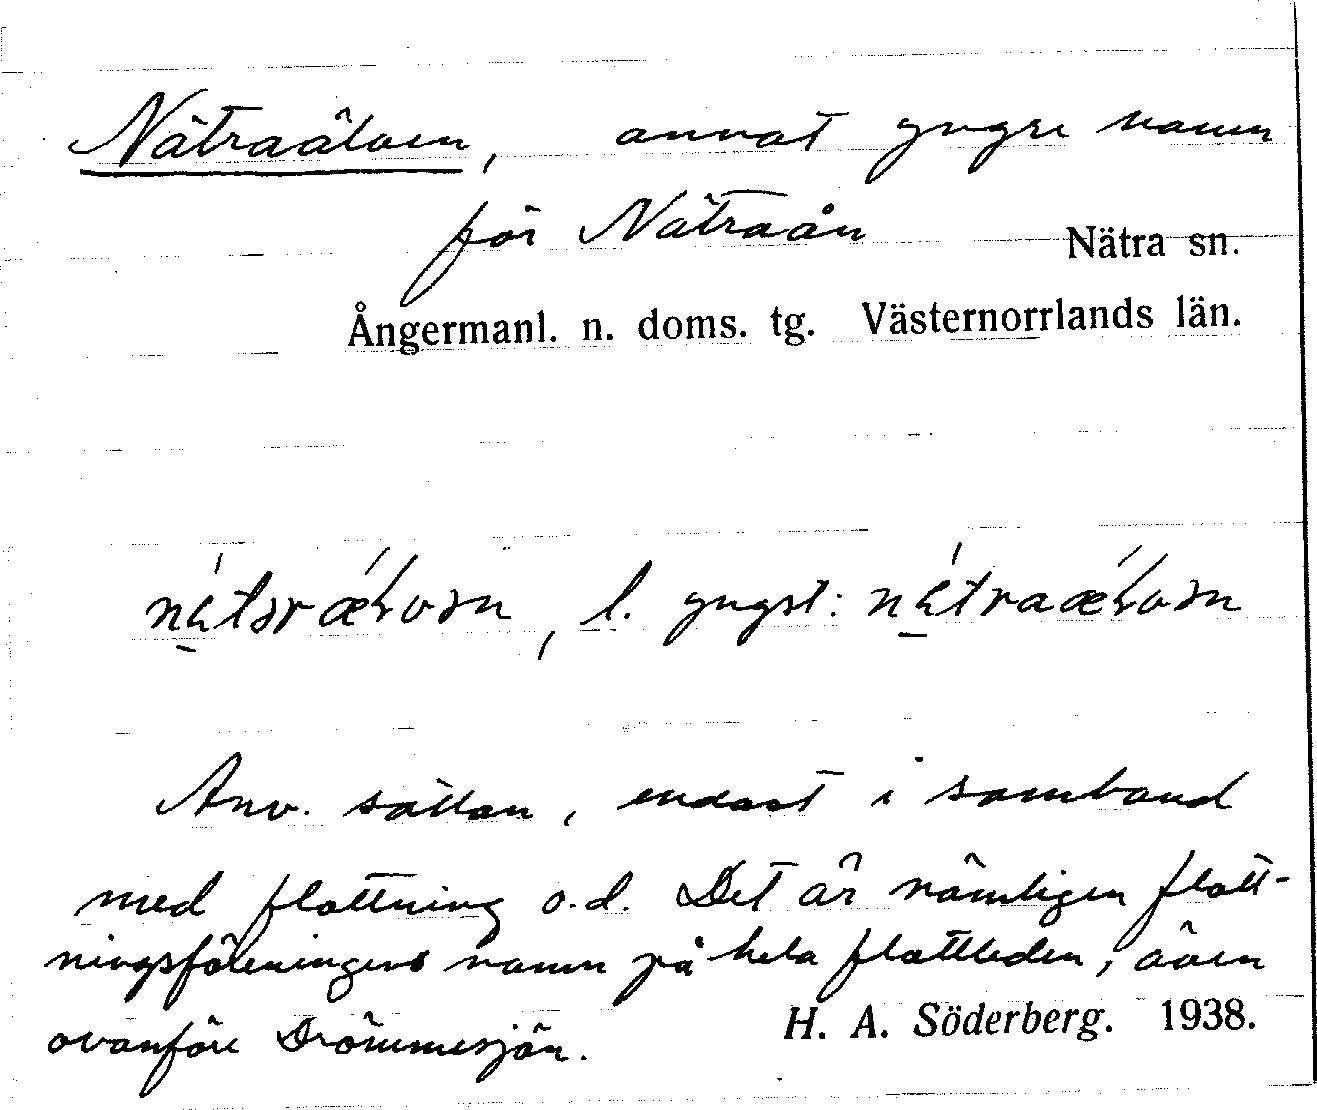 Nätraälven, annat yngre namn
för Nätraån Nätra sn.
Ångermanl. n. doms. tg. Västernorrlands län.
l. yngst:
Anv. sällan, endast i samband
med flottning o.d. Det är nämligen flott-
ningsföreningens namn på hela flottleden, även
ovanför Drömmesjön. H. A. Söderberg. 1938.